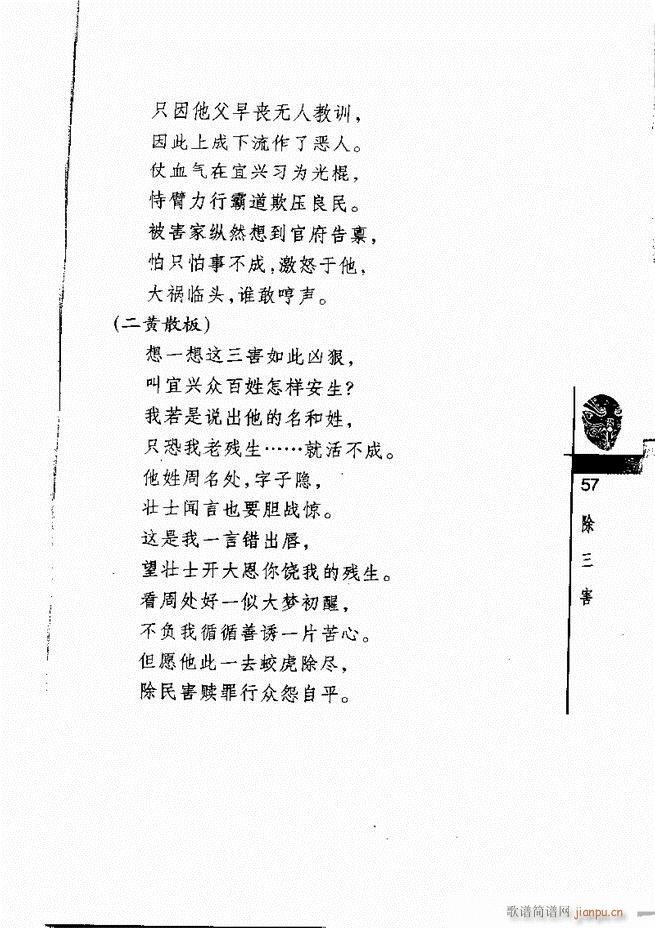 只因他父早丧无人教训，
因此上成下流作了恶人。
仗血气在宜兴习为光棍，
恃臂力行霸道欺压良民。
被害家纵然想到官府告禀，
怕只怕事不成，激怒于他，
大祸临头，谁敢哼声。
（二黄散板）
想一想这三害如此凶狠，
叫宜兴众百姓怎样安生？
我若是说出他的名和姓，
只恐我老残生……就活不成。
他姓周名处，字子隐，
壮士闻言也要胆战惊。
这是我一言错出唇，
望壮士开大恩你饶我的残生。
看周处好一似大梦初醒，
不负我循循善诱一片苦心。
但愿他此一去蛟虎除尽，
除民害赎罪行众怨自平。
57
除三害
歌谱简谱网 jianpu.cn